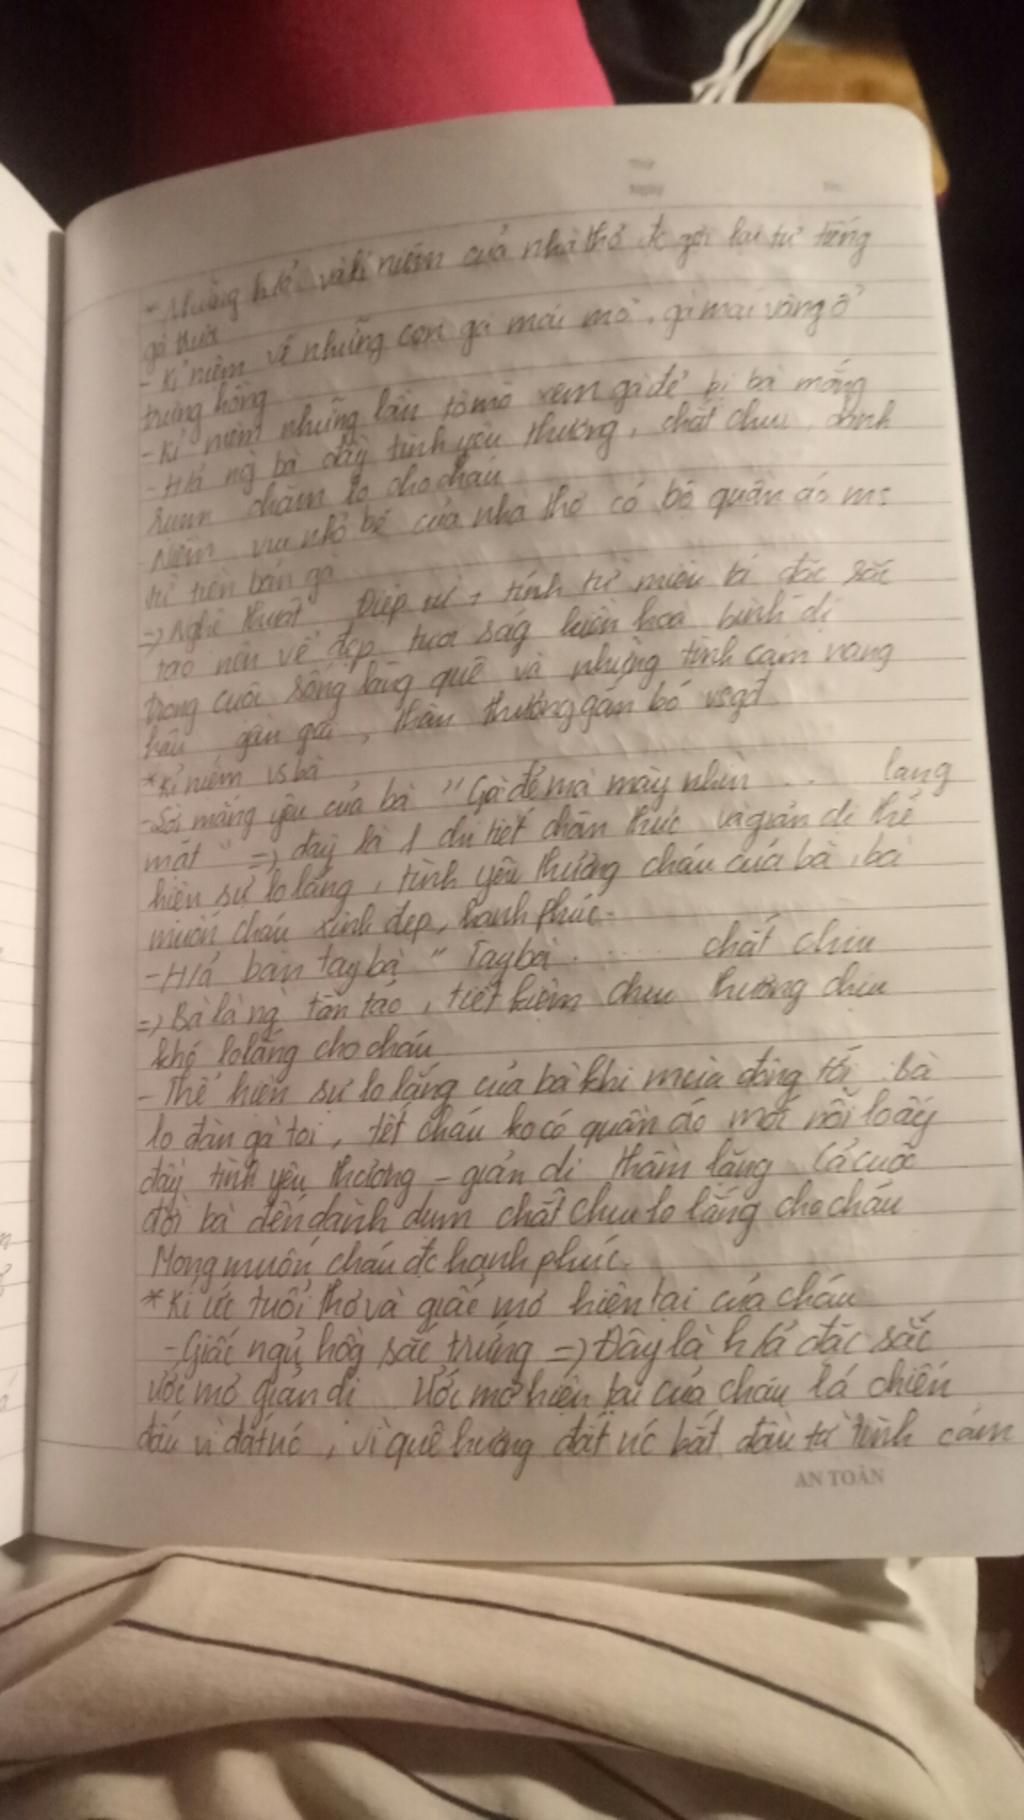 Thứ
Ngày
No.
* Những h/ả và kỉ niệm của nhà thơ đc gợi lại từ tiếng
gà trưa
- Kỉ niệm về những con gà mái mơ, gà mái vàng ổ
trứng hồng
- Kỉ niệm những lần tò mò xem gà đẻ bị bà mắng
- H/ả ng bà đầy tình yêu thương, chắt chiu, dành
chăm lo cho cháu
- Niềm vui nhỏ bé của nhà thơ có bộ quần áo ms
từ tiền bán gà
=> Nghệ thuật Điệp từ, tính từ miêu tả đặc sắc
tạo nên vẻ đẹp tươi ság hiền hoà bình dị
trong cuộc sống làng quê và những tình cảm
hậu gần gũi, thân thương gắn bó vs gđ
* Kỉ niệm vs bà
- Lời mắng yêu của bà "Gà đẻ mà mày nhìn . . lang
mặt" => đây là 1 chi tiết chân thực và giản dị thể
hiện sự lo lắng, tình yêu thương cháu của bà, bà
muốn cháu xinh đẹp, hạnh phúc.
- H/ả bàn tay bà "Tay bà ..... chắt chiu
=> Bà là ng tần tảo, tiết kiệm chịu thương chịu
khó lo lắng cho cháu
- Thể hiện sự lo lắng của bà khi mùa đông tới. Bà
lo đàn gà toi, tết cháu ko có quần áo mới nỗi lo ấy
đầy tình yêu thương - giản dị thầm lặng Cả cuộc
đời bà đến dành dụm chắt chiu lo lắng cho cháu
Mong muốn cháu đc hạnh phúc.
* Kí ức tuổi thơ và giấc mơ hiện tại của cháu
- Giấc ngủ hồg sắc trứng => Đây là h/ả đặc sắc
ước mơ giản dị Ước mơ hiện tại của cháu là chiến
đấu vì đất nc, vì quê hương đất nc bắt đầu từ tình cảm
AN TOÀN